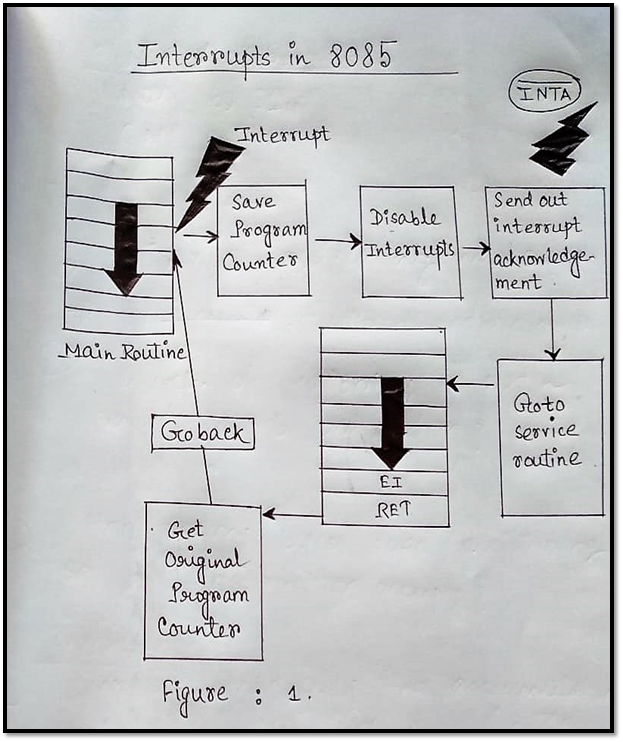 Interrupts in 8085
INTA
Interrupt
Save
Program
Counter
Disable
Interrupts
Send out
interrupt
acknowledge-
ment.
Main Routine
Goto
service
routine
EI
RET
Go back
Get
Original
Program
Counter
Figure : 1.